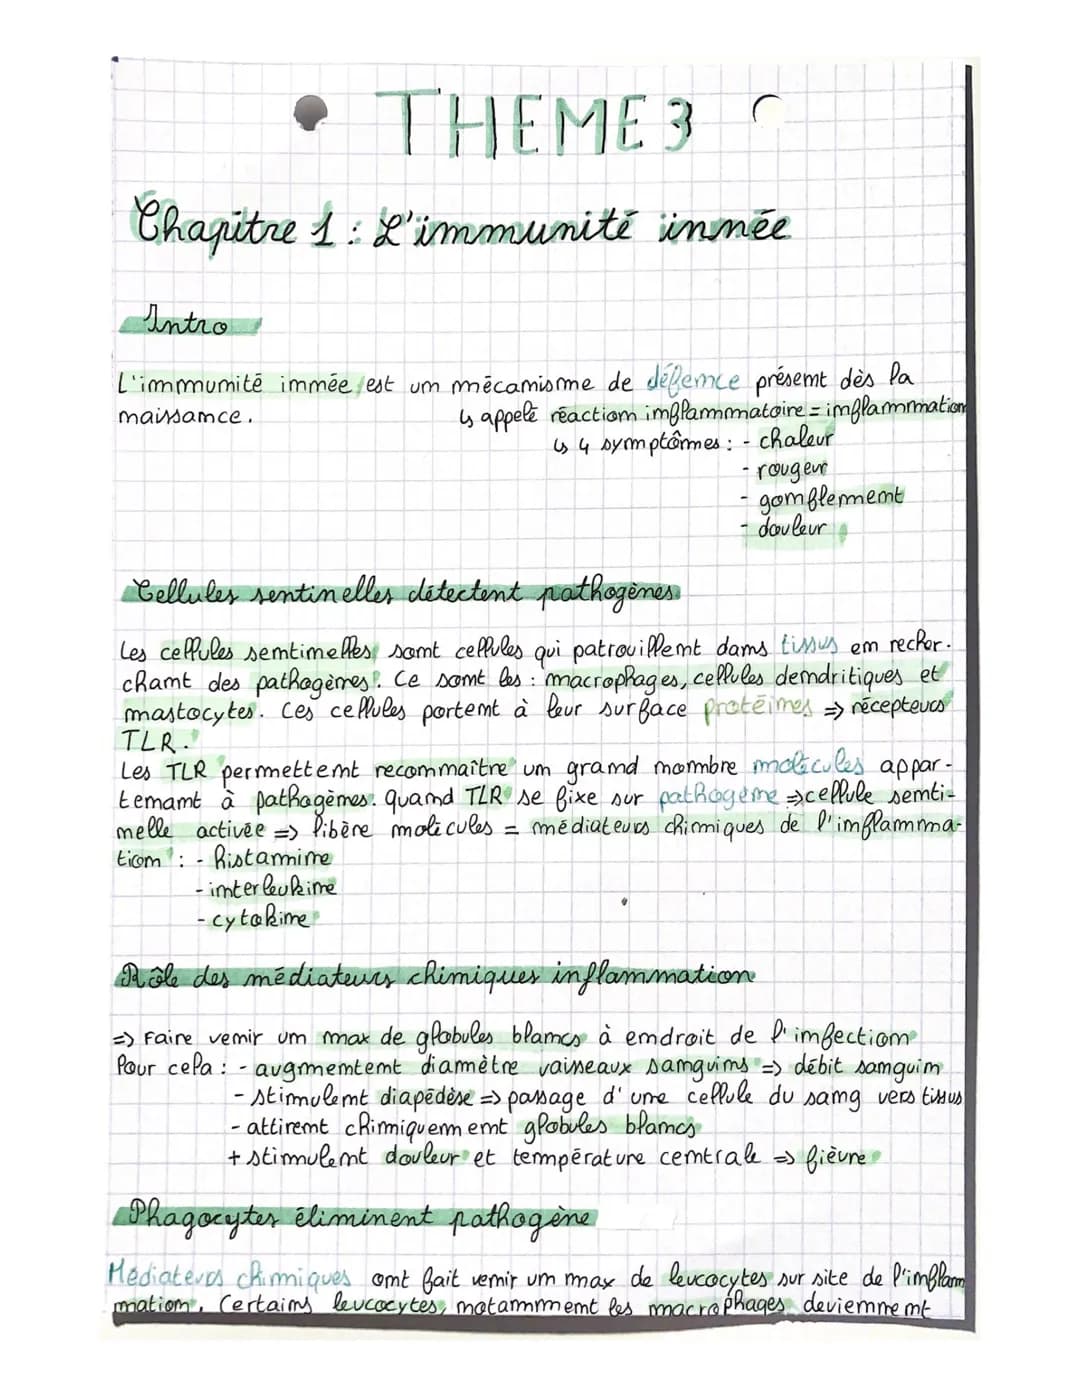 THEME 3
Chapitre 1 : L'immunité innée
Intro
L'immunité innée est un mécanisme de défence présent dès la
naissance.
↳ appelé réaction inflammatoire = inflammation
↳ 4 symptômes : - chaleur
- rougeur
- gonflement
- douleur
Cellules sentinelles détectent pathogènes
Les cellules sentinelles sont cellules qui patrouillent dans tissus en recher-
chant des pathogènes. Ce sont les : macrophages, cellules dendritiques et
mastocytes. Ces cellules portent à leur surface protéines => récepteurs
TLR.
Les TLR permettent reconnaître un grand nombre molécules appar-
tenant à pathogènes. quand TLR se fixe sur pathogène => cellule senti-
nelle activée => libère molécules = médiateurs chimiques de l'inflamma-
tion : - histamine
- interleukine
- cytokine
Rôle des médiateurs chimiques inflammation
=> Faire venir un max de globules blancs à endroit de l'infection
Pour cela : - augmentent diamètre vaisseaux sanguins => débit sanguin
- stimulent diapédèse => passage d'une cellule du sang vers tissus
- attirent chimiquement globules blancs
+ stimulent douleur et température centrale => fièvre
Phagocytes éliminent pathogène
Médiateurs chimiques ont fait venir un max de leucocytes sur site de l'inflam
mation. Certains leucocytes, notamment les macrophages deviennent